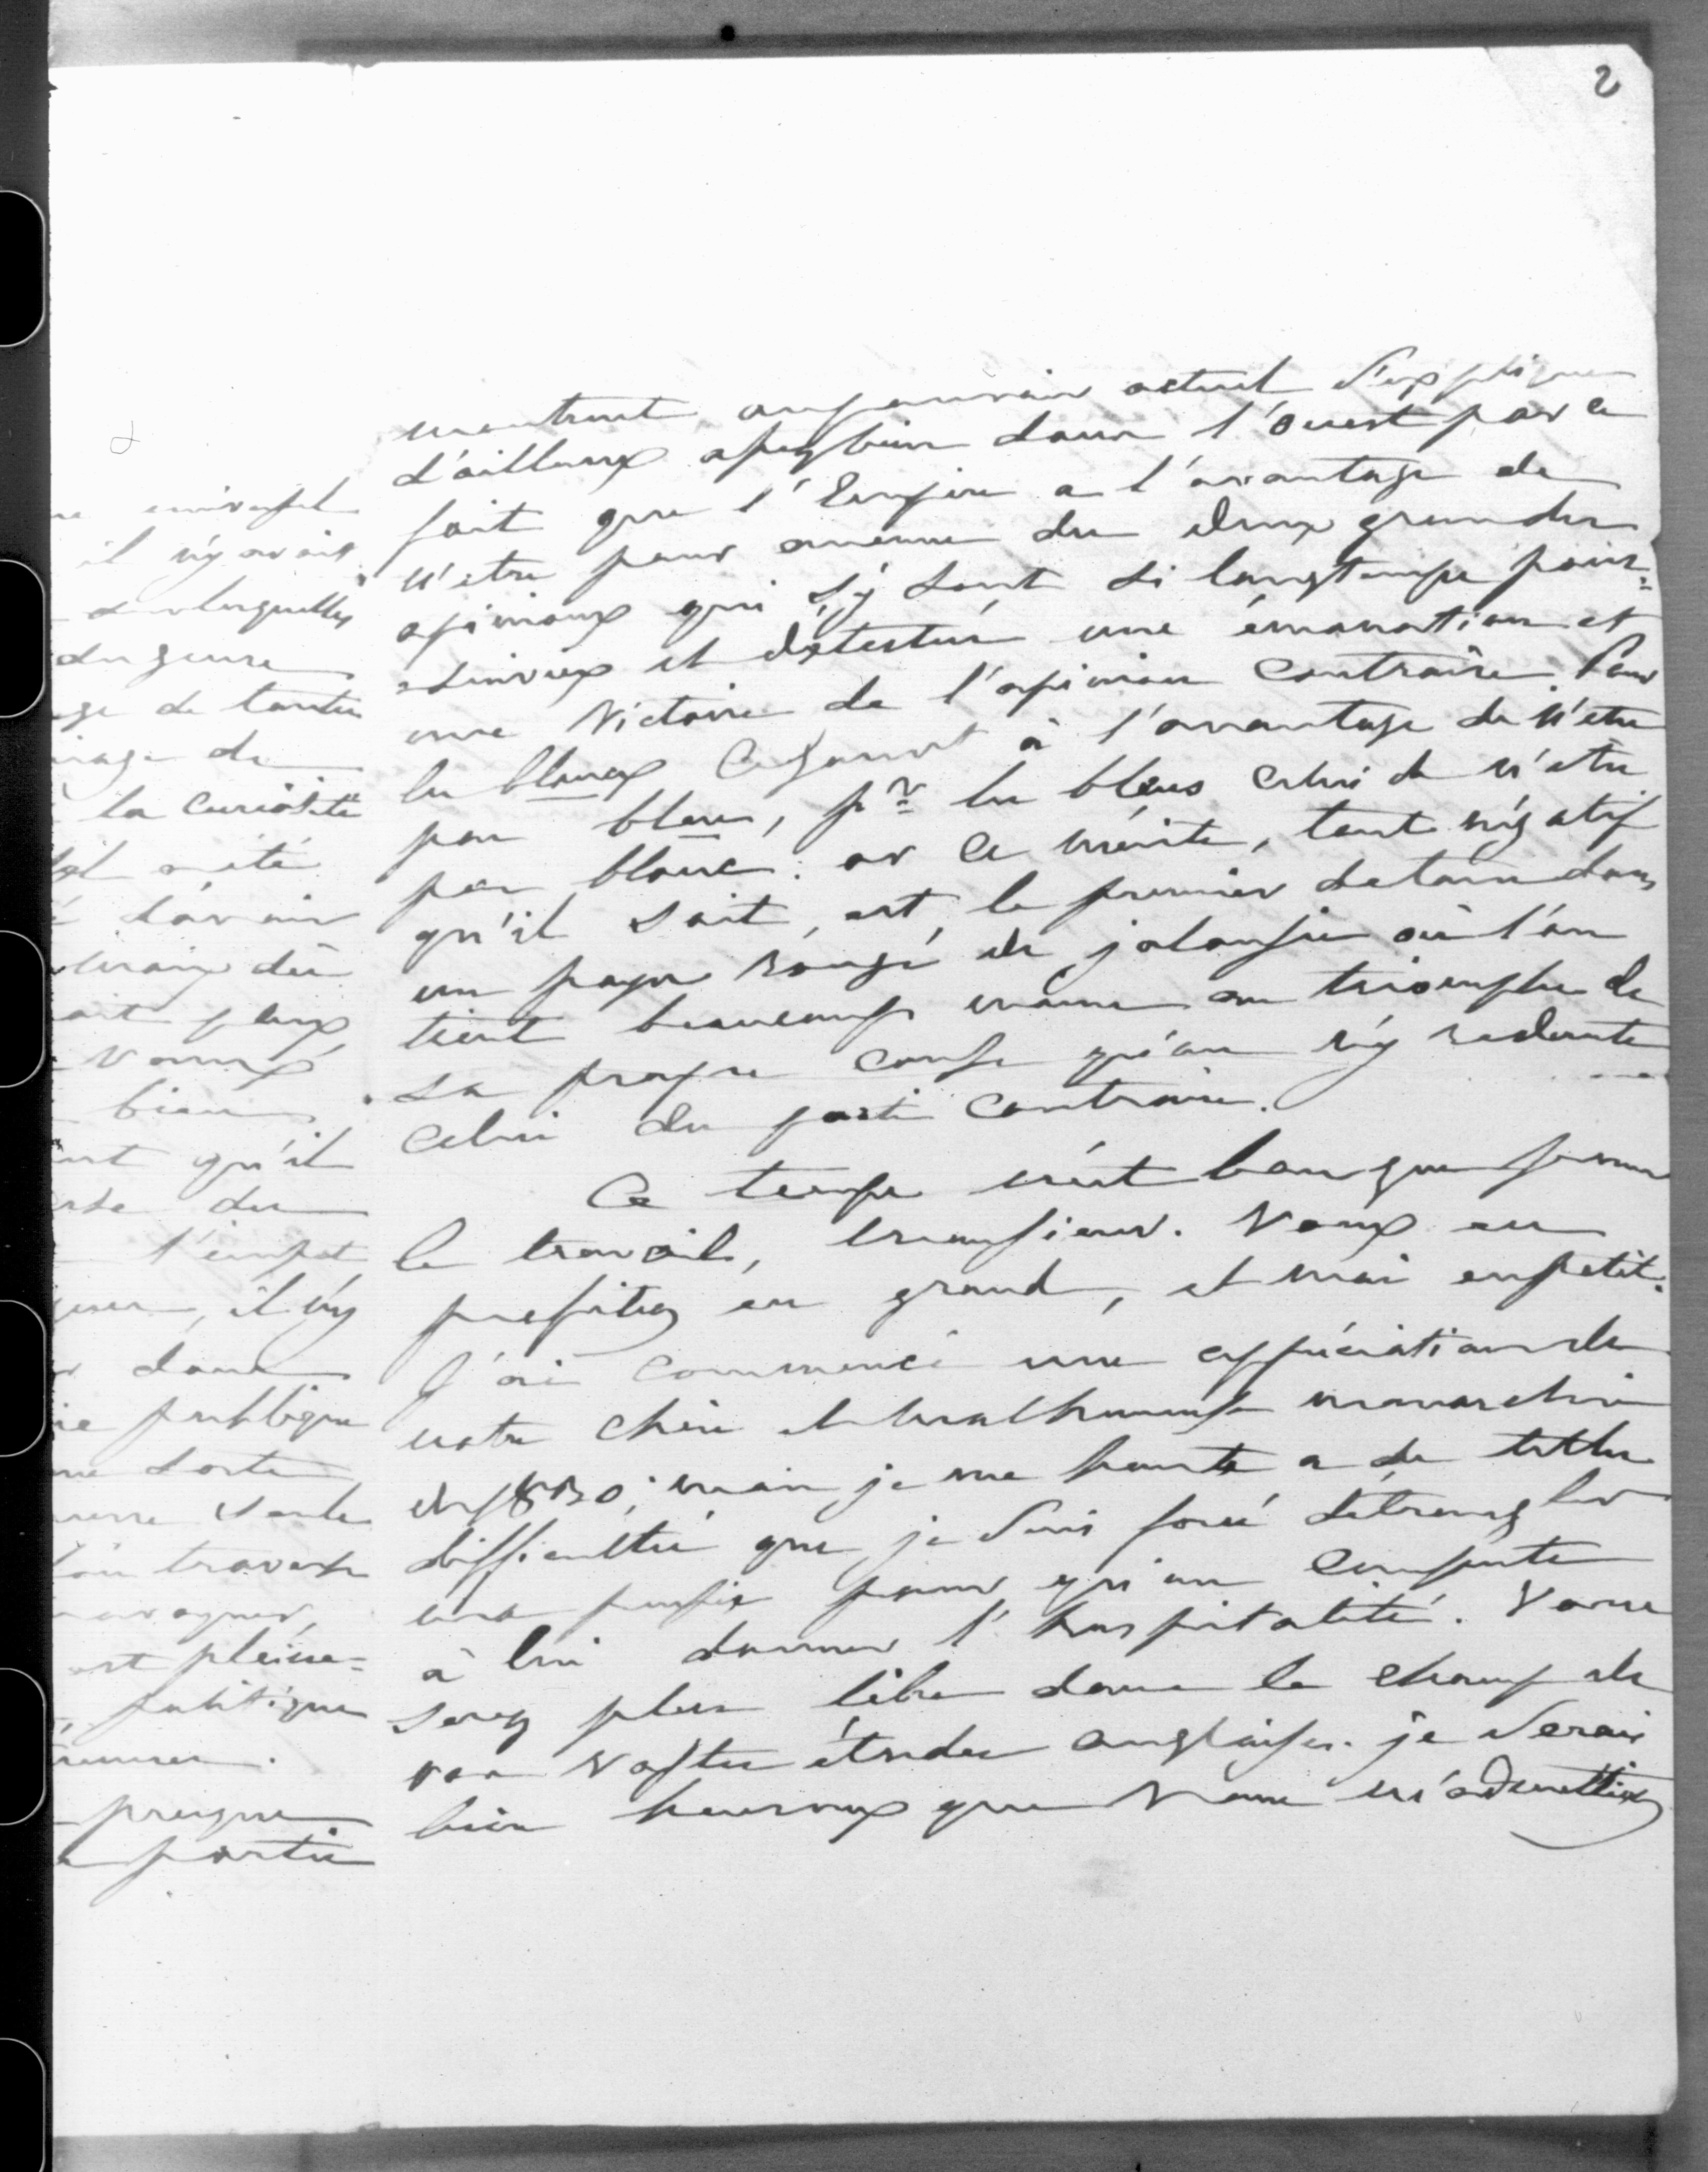 2
montrent au pouvoir actuel s'explique
d'ailleurs assez bien dans l'ouest par ce
fait que l'Empire a l'avantage de
n'etre pour aucune des deux grandes
opinions qui s'y sont si longtemps pour=
=suivies et détestées une émanation et
une victoire de l'opinion contraire. Pour
les blancs ce gouvt à l'avantage de n'etre
pas bleu, pr les bleus celui de n'etre
pas blanc: or ce mérite, tout négatif
qu'il soit, est le premier de tous dans
un pays rongé de jalousie où l'on
tient beaucoup moins au triomphe de
sa propre cause qu'on n'y redoute
celui du parti contraire.
Ce temps n'est bon que pour
le travail, monsieur. Vous en
profitez en grand, et moi en petit.
J'ai commencé une appréciation de
notre chère et malheureuse monarchie
de 1830; mais je me heurte a de telles
difficultés que je suis forcé d'étrangler
ma pensée pour qu'on consente
à lui donner l'hospitalité. Vous
serez plus libre dans le champ de
vos vastes études anglaises. je serais
bien heureux que vous m'admettiez
universel
il n'y avait
sur lesquelles
du genre
de toutes
la curiosité
d'avoir
dû
plus
bien
qu'il
du
il n'y
dans
publique
sorte
seule
travers
est pleine=
politique
partie